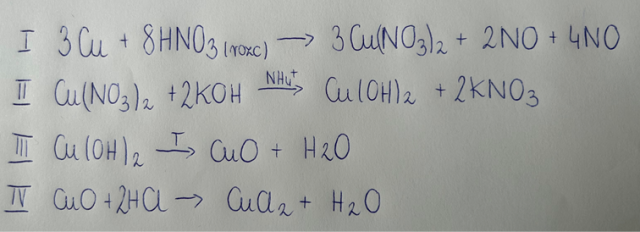 I 3Cu + 8HNO3(rozc) → 3Cu(NO3)2 + 2NO + 4NO
II Cu(NO3)2 + 2KOH NH4+→ Cu(OH)2 + 2KNO3
III Cu(OH)2 T→ CuO + H2O
IV CuO + 2HCl → CuCl2 + H2O